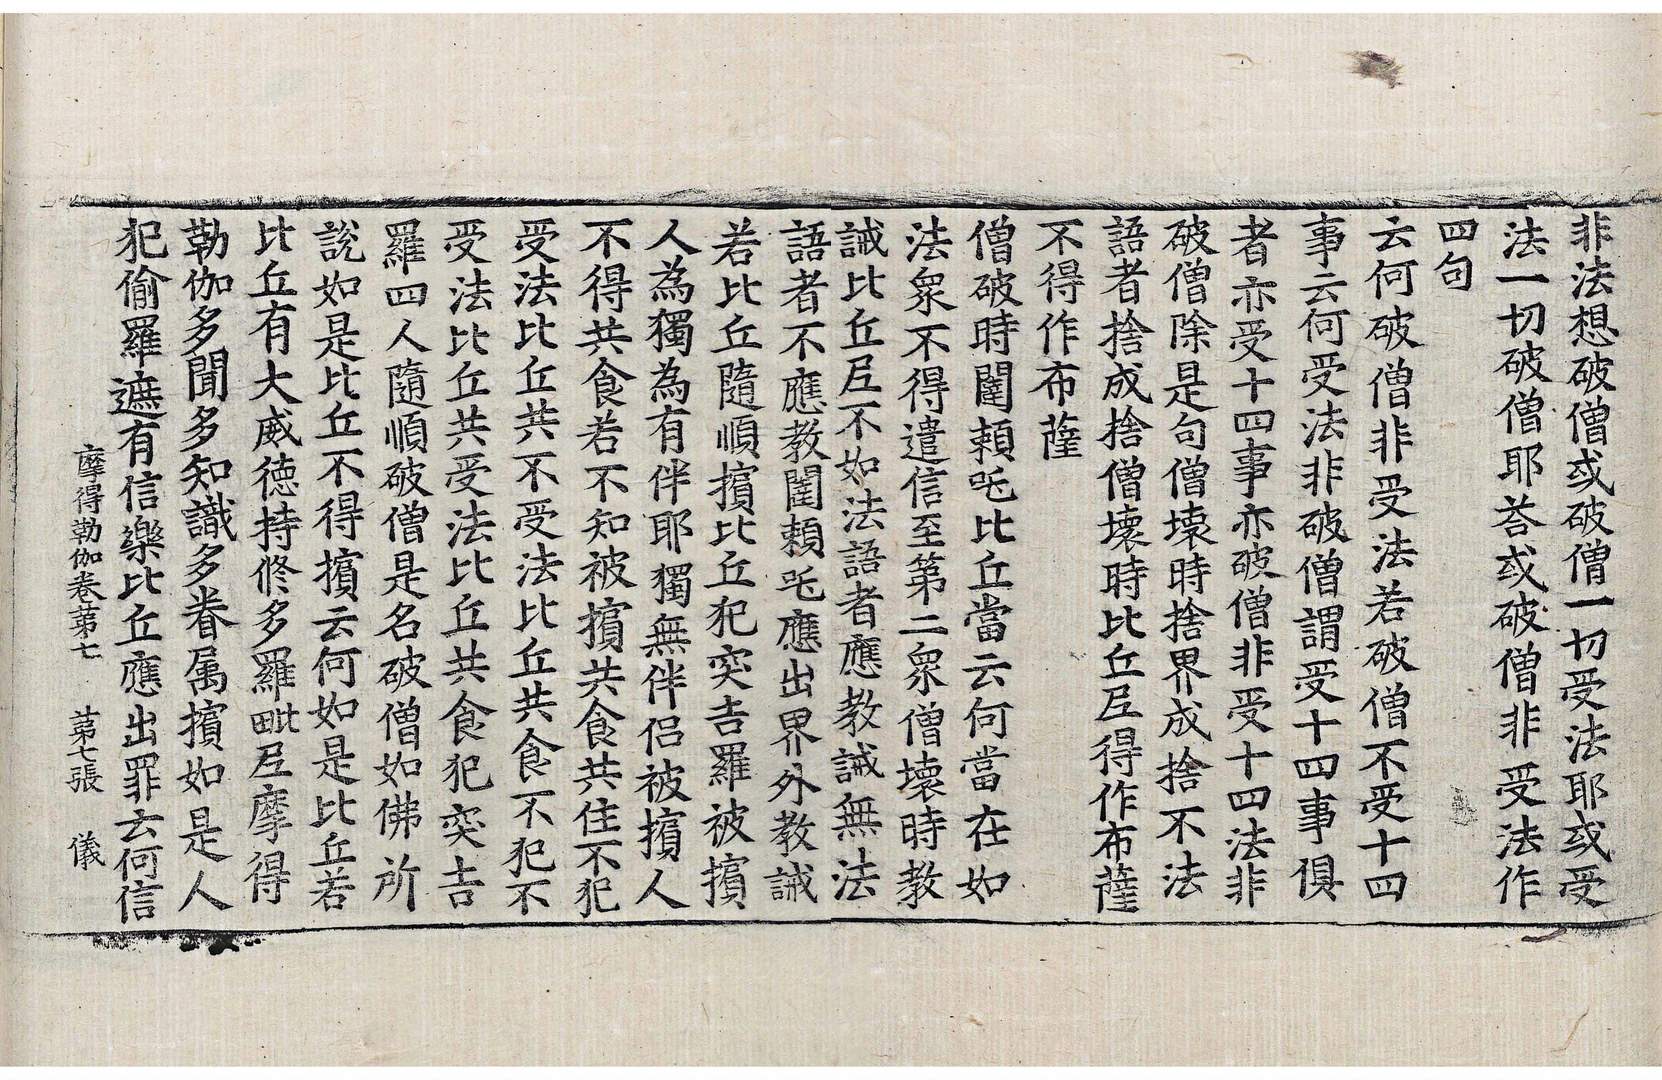 非法想破僧或破僧一切受法耶或受
法一切破僧耶荅或破僧非受法作
四句
云何破僧非受法若破僧不受十四
事云何受法非破僧謂受十四事俱
者亦受十四事亦破僧非受十四法非
破僧除是句僧壊時捨界成捨不法
語者捨成捨僧壊時比丘𡰱得作布薩
不得作布薩
僧破時闥頼吒比丘當云何當在如
法衆不得遣信至第二衆僧壊時教
誡比丘𡰱不如法語者應教誡無法
語者不應教闥頼吒應出界外教誡
若比丘隨順擯比丘犯突吉羅被擯
人為獨為有伴耶獨無伴侣被擯人
不得共食若不知被擯共食共住不犯
受法比丘共不受法比丘共食不犯不
受法比丘共受法比丘共食犯突吉
羅四人隨順破僧是名破僧如佛所
說如是比丘不得擯云何如是比丘若
比丘有大威德持修多羅毗𡰱摩得
勒伽多聞多知識多眷属擯如是人
犯偷羅遮有信樂比丘應出罪云何信
摩得勒伽卷苐七　苐七張　儀